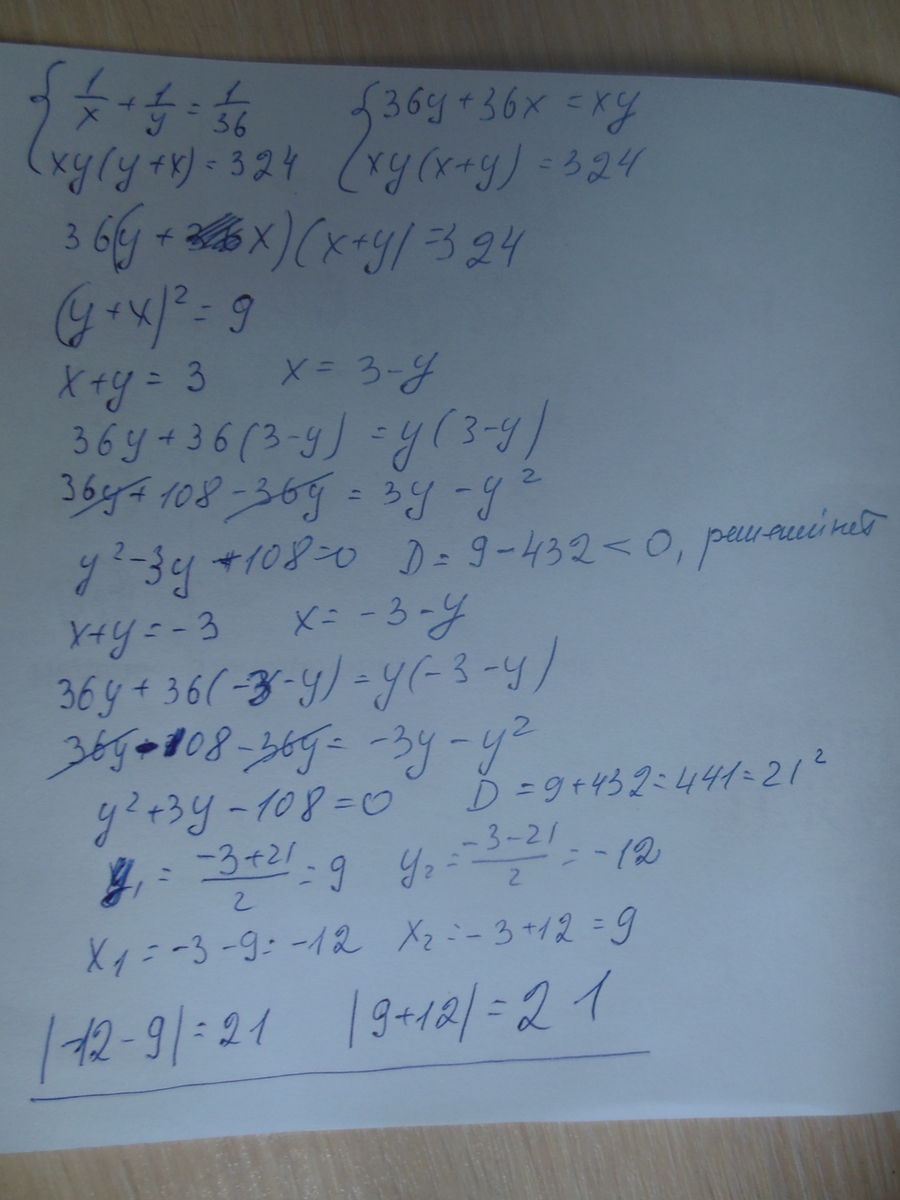 { 1/x + 1/y = 1/36    { 36y + 36x = xy
xy(y+x) = 324    xy(x+y) = 324
36(y + x)(x+y) = 324
(y+x)² = 9
x+y = 3    x = 3-y
36y + 36(3-y) = y(3-y)
36y + 108 - 36y = 3y - y²
y² - 3y + 108 = 0    D = 9 - 432 < 0, решений нет
x+y = -3    x = -3-y
36y + 36(-3-y) = y(-3-y)
36y - 108 - 36y = -3y - y²
y² + 3y - 108 = 0    D = 9 + 432 = 441 = 21²
y₁ = (-3+21)/2 = 9    y₂ = (-3-21)/2 = -12
x₁ = -3 - 9 = -12    x₂ = -3 + 12 = 9
|-12 - 9| = 21    |9+12| = 21